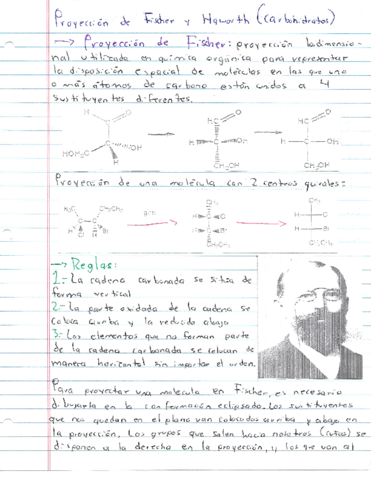 Proyección de Fischer y Haworth (carbohidratos)
→ Proyección de Fischer: proyección bidimensio-
nal utilizada en química orgánica para representar
la disposición espacial de moléculas en las que uno
o más átomos de carbono están unidos a 4
sustituyentes diferentes.
H O HC O HC O
HOH₂C OH H OH H OH
CH₂OH CH₂OH
Proyección de una molécula con 2 centros quirales:
CH₃
H Cl
H Br
CH₂CH₃
→ Reglas:
1.- La cadena carbonada se sitúa de
forma vertical
2.- La parte oxidada de la cadena se
coloca arriba y la reducida abajo
3.- Los elementos que no forman parte
de la cadena carbonada se colocan de
manera horizontal sin importar el orden.
Para proyectar una molécula en Fischer, es necesario
dibujarla en la conformación eclipsada. Los sustituyentes
que nos quedan en el plano van colocados arriba y abajo en
la proyección. Los grupos que salen hacia nosotros (cuñas) se
disponen a la derecha en la proyección, y los que van al